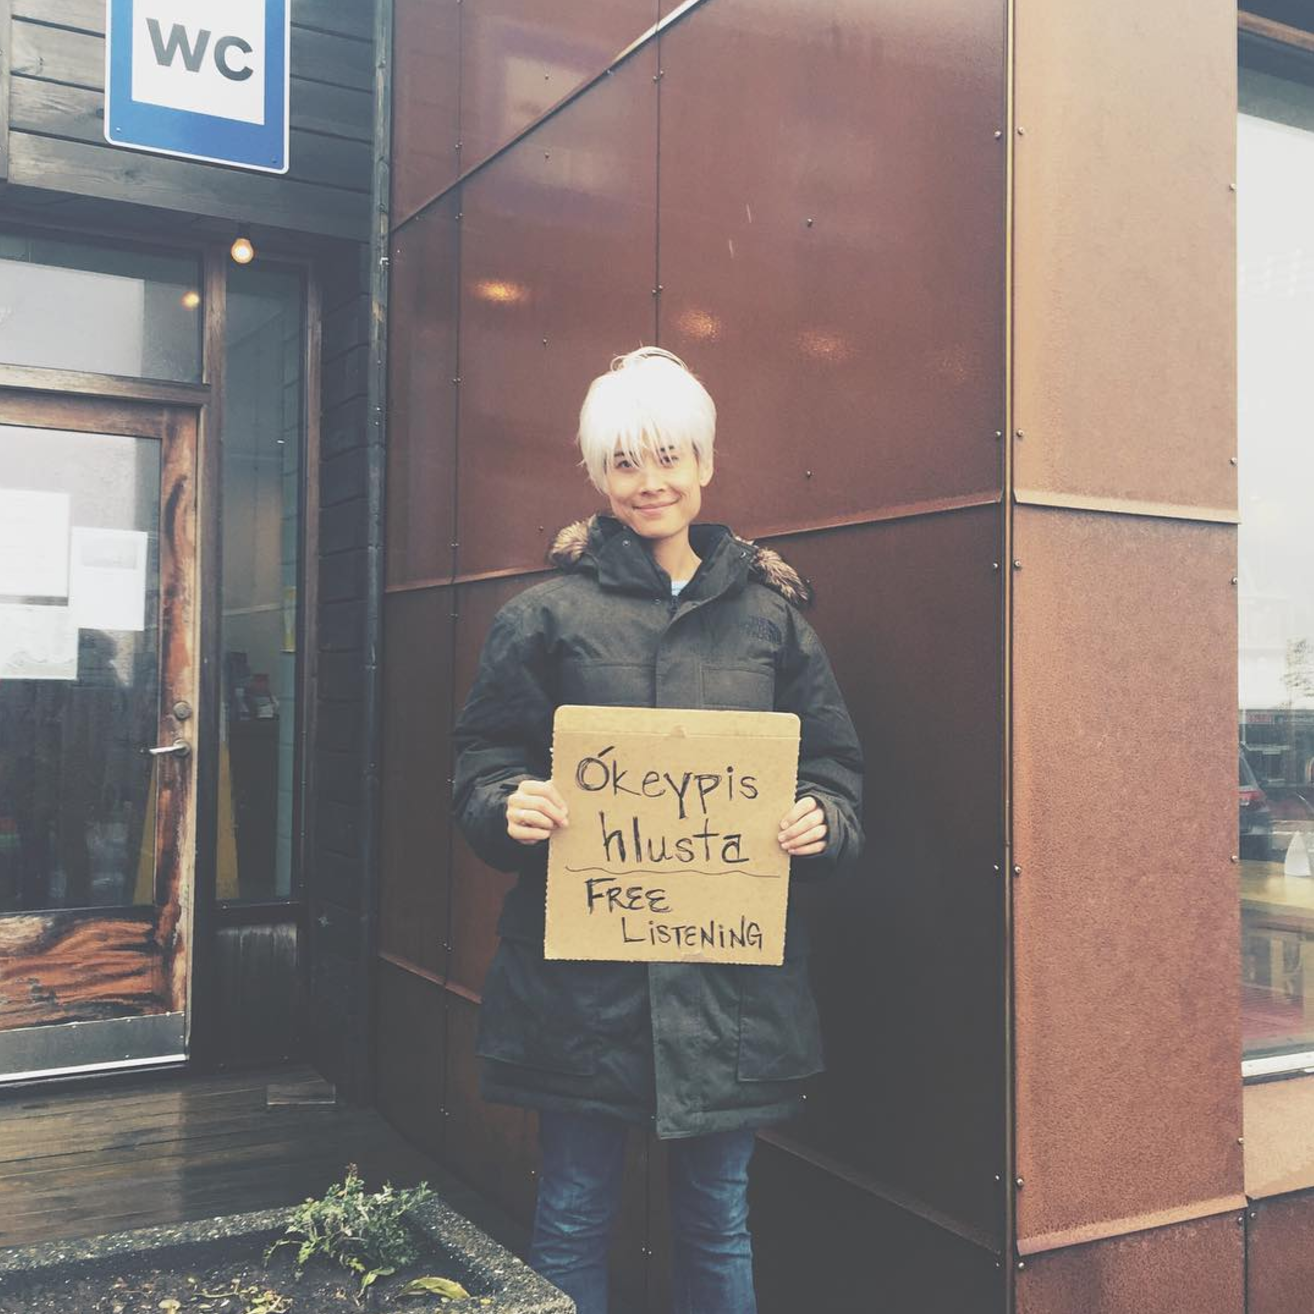 WC
THE
NORTH
FACE
Ókeypis
hlusta
FREE
LiSTENiNG